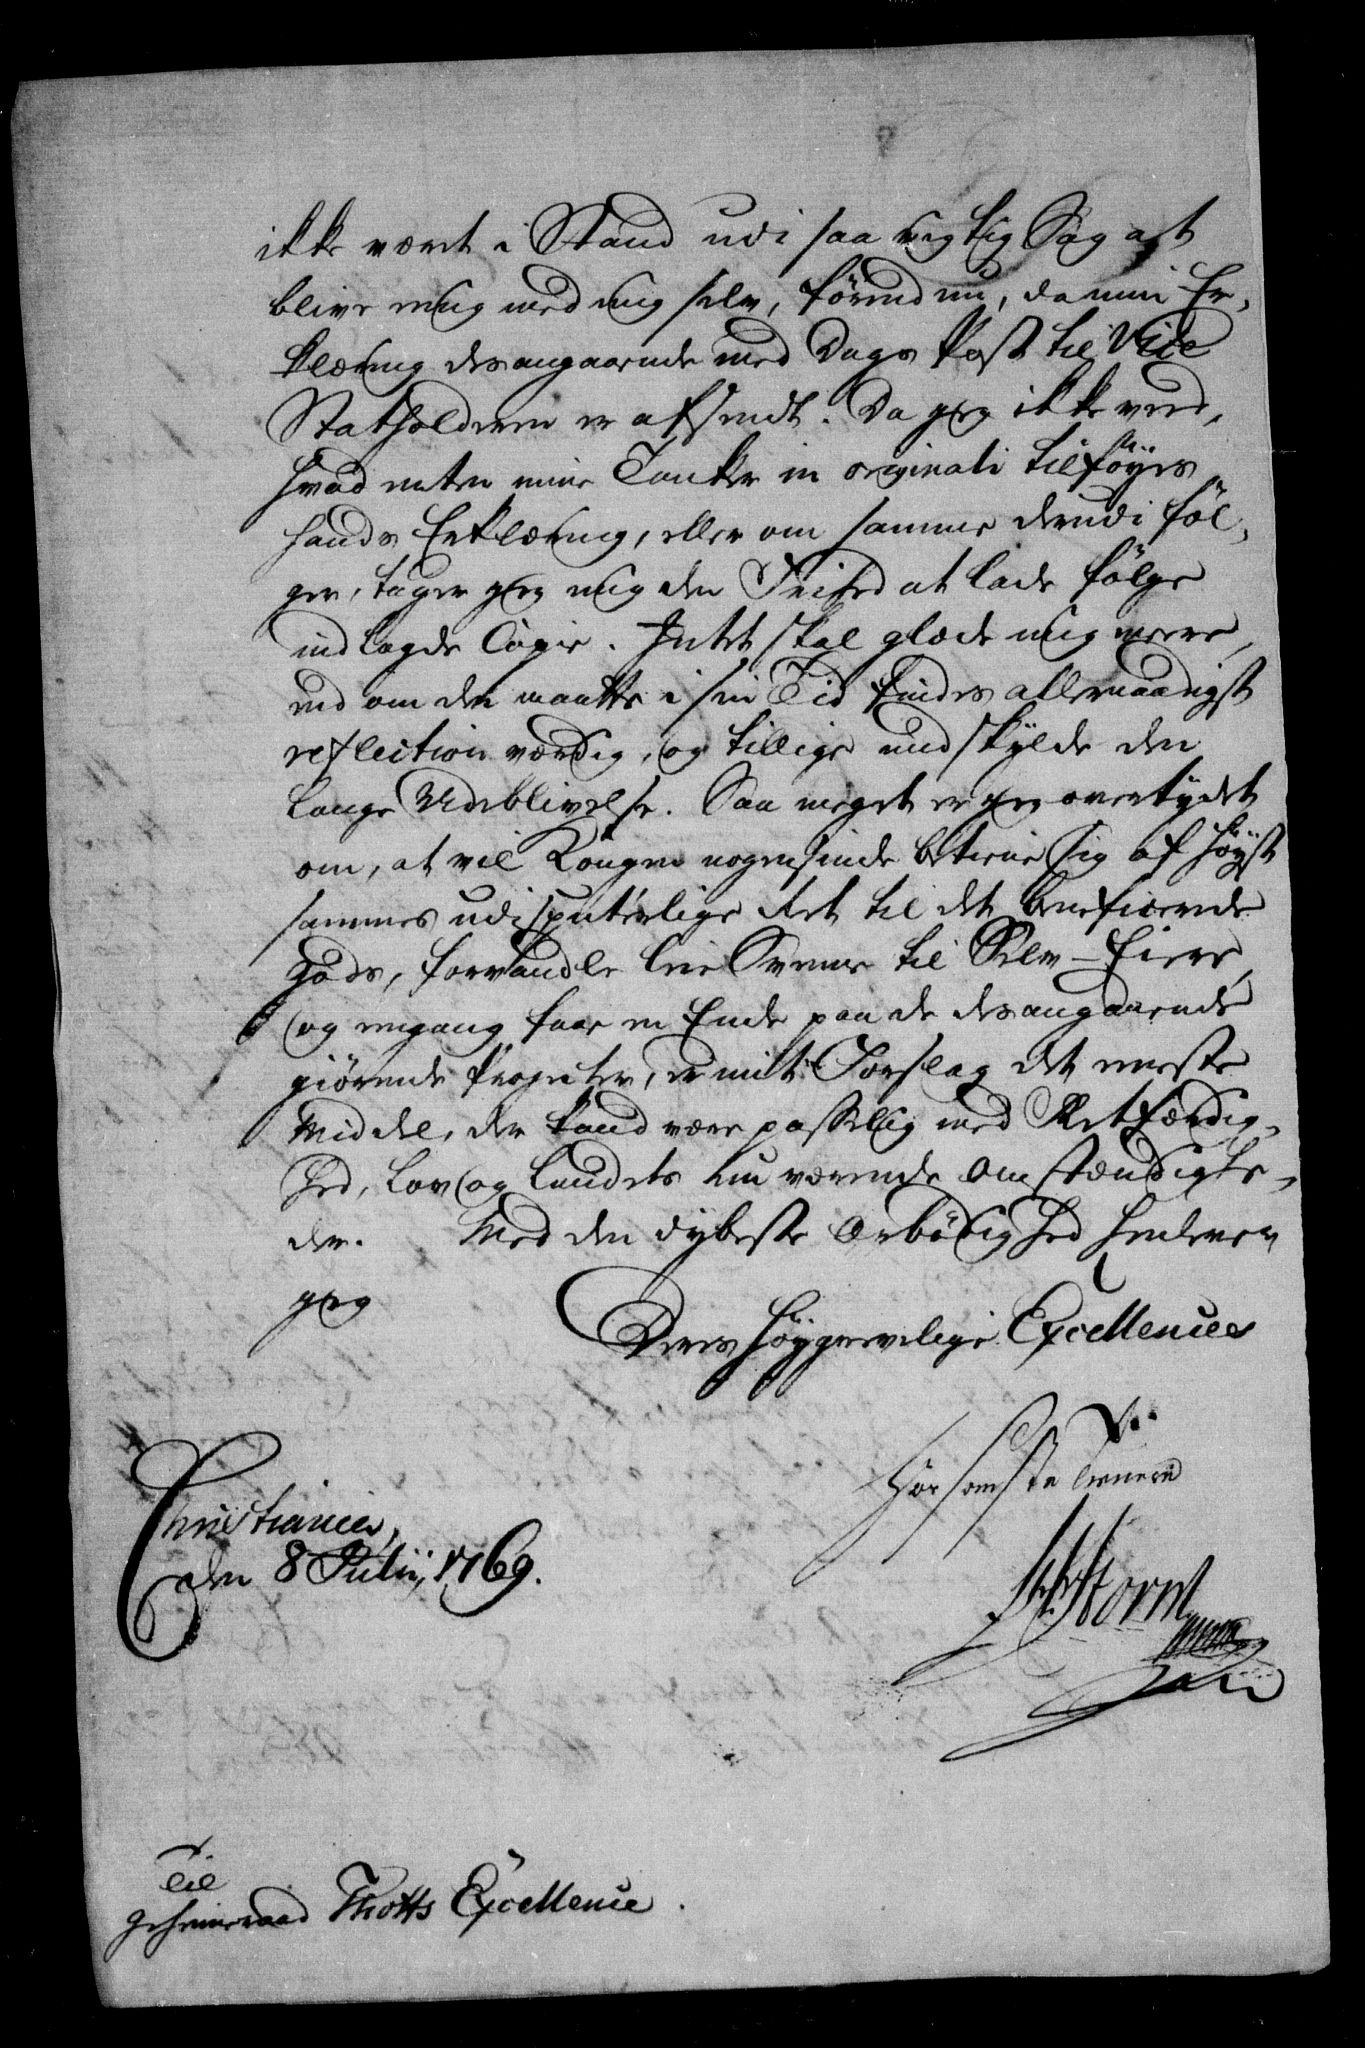 ikke været i Stand udi saa vigtig Sag at
blive enig med mig selv, førend nu, da min Er,
klæring desangaaende med Dags Post til Vice
Statholderen er afsendt. Da jeg ikke veed,
hvad enten mine Tanker in originali tilføyes
hands Erklæring, eller om samme derudi føl,
ger, tager jeg mig den Friehed at lade følge
indlagde Copie. Intet skal glæde mig meere,
end om den maatte i sin Tid findes allernaadigst
reflection værdig, og tillige undskylde den
lange Udeblivelse. Saa meget er jeg overtydet
om, at vil Kongen nogensinde betiene sig af Høyst
sammes udisputerlige Ret til det beneficerede
Gods, forvandle til Selv-Eiere,
og engang faae en Ende paa de desangaaende
giørende Projecter, er mit Forslag det eneste
Middel, der kand være passelig med Retfærdig,
hed, Lov og Landets nu værende Omstændighe,
der. Med den dybeste Ærbødighed henlever
jeg
Deres Høygrevelige Excellences
Hørsomste Tienere
Storm
Christiania,
den 8 Julii, 1769.
Til
Geheimeraad Thotts Excellence.